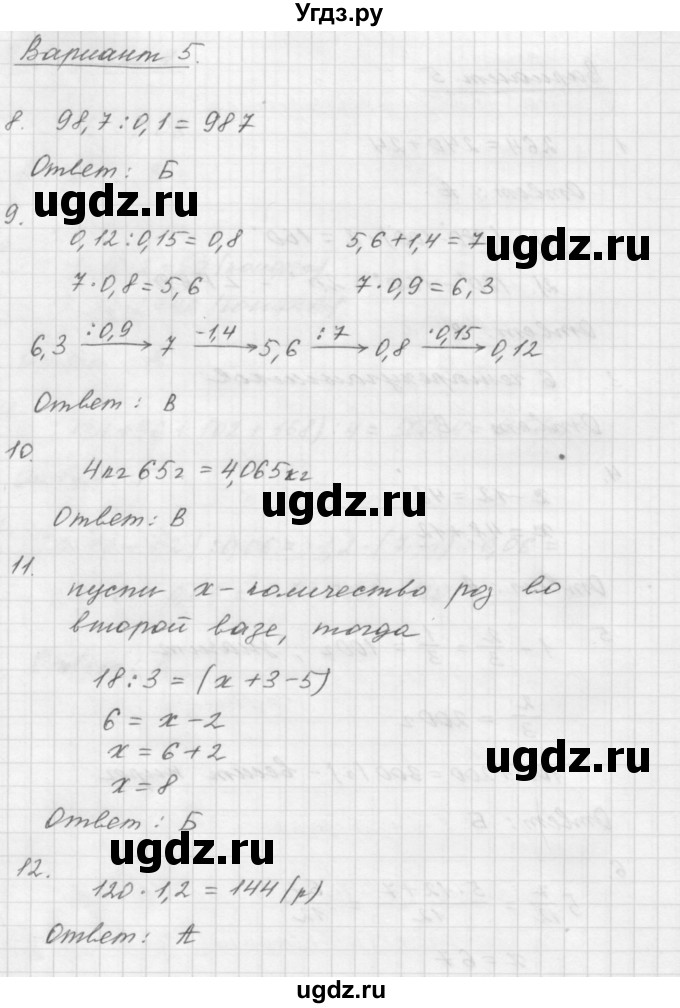 Угдз.ру
Вариант 5.
8. 98,7 : 0,1 = 987
Ответ: Б
9.
0,12 : 0,15 = 0,8 5,6 + 1,4 = 7
7 · 0,8 = 5,6 7 · 0,9 = 6,3
6,3 :0,9 → 7 -1,4 → 5,6 :7 → 0,8 ·0,15 → 0,12
Ответ: В
10.
4кг 65г = 4,065кг
Ответ: В
11.
пусть x - количество роз во
второй вазе, тогда
18 : 3 = (x + 3 - 5)
6 = x - 2
x = 6 + 2
x = 8
Ответ: Б
12.
120 · 1,2 = 144 (р)
Ответ: А
ugdz.ru
ugdz.ru
ugdz.ru
ugdz.ru
ugdz.ru
ugdz.ru
ugdz.ru
ugdz.ru